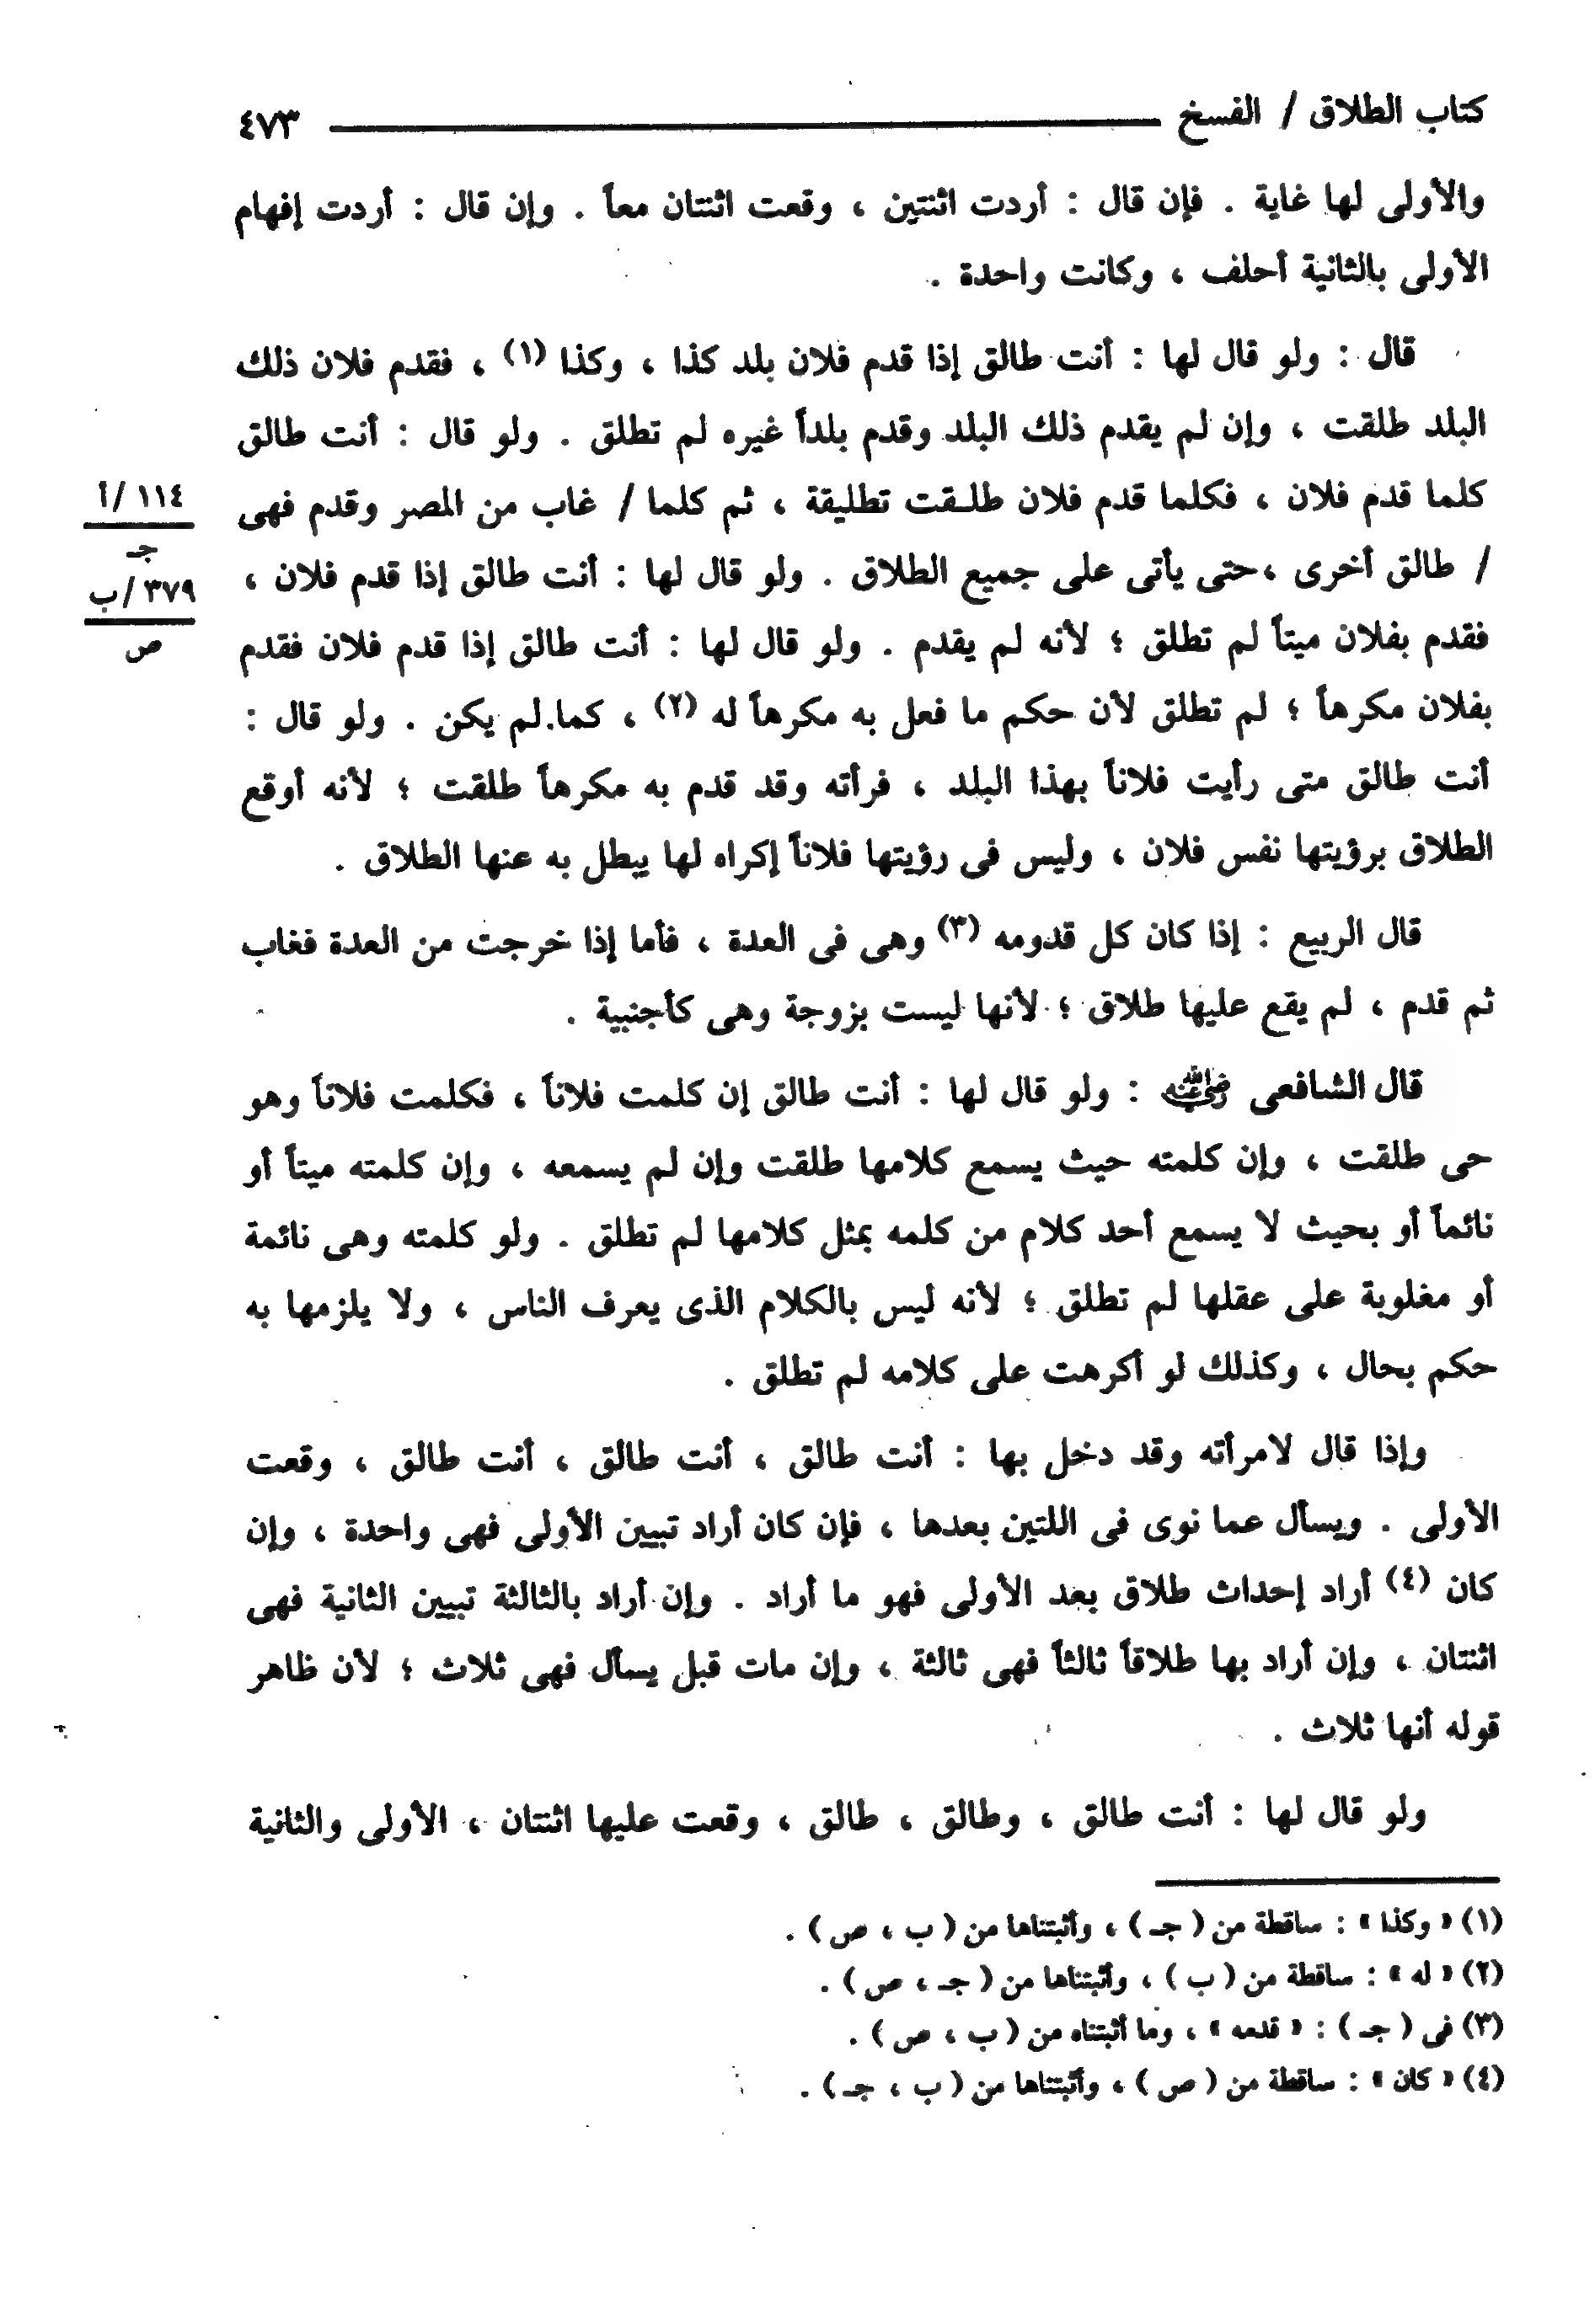 كتاب الطلاق / الفسخ ٤٧٣
والأولى لها غاية . فإن قال : أردت اثنتين ، وقعت اثنتان معاً . وإن قال : أردت إفهام
الأولى بالثانية أحلف ، وكانت واحدة .
قال : ولو قال لها : أنت طالق إذا قدم فلان بلد كذا ، وكذا (١) ، فقدم فلان ذلك
البلد طلقت ، وإن لم يقدم ذلك البلد وقدم بلداً غيره لم تطلق . ولو قال : أنت طالق
كلما قدم فلان ، فكلما قدم فلان طلـقت تطليقة ، ثم كلما / غاب من المصر وقدم فهى
١١٤ /أ
جـ
/ طالق أخرى ،حتى يأتى على جميع الطلاق . ولو قال لها : أنت طالق إذا قدم فلان ،
٣٧٩ /ب
ص
فقدم بفلان ميتاً لم تطلق ؛ لأنه لم يقدم . ولو قال لها : أنت طالق إذا قدم فلان فقدم
بفلان مكرهاً ؛ لم تطلق لأن حكم ما فعل به مكرهاً له (٢) ، كما لم يكن . ولو قال :
أنت طالق متى رأيت فلاناً بهذا البلد ، فرأته وقد قدم به مكرهاً طلقت ؛ لأنه أوقع
الطلاق برؤيتها نفس فلان ، وليس فى رؤيتها فلاناً إكراه لها يبطل به عنها الطلاق .
قال الربيع : إذا كان كل قدومه (٣) وهى فى العدة ، فأما إذا خرجت من العدة فغاب
ثم قدم ، لم يقع عليها طلاق ؛ لأنها ليست بزوجة وهى كأجنبية .
قال الشافعى رضي الله عنه : ولو قال لها : أنت طالق إن كلمت فلاناً ، فكلمت فلاناً وهو
حى طلقت ، وإن كلمته حيث يسمع كلامها طلقت وإن لم يسمعه ، وإن كلمته ميتاً أو
نائماً أو بحيث لا يسمع أحد كلام من كلمه بمثل كلامها لم تطلق . ولو كلمته وهى نائمة
أو مغلوبة على عقلها لم تطلق ؛ لأنه ليس بالكلام الذى يعرف الناس ، ولا يلزمها به
حكم بحال ، وكذلك لو أكرهت على كلامه لم تطلق .
وإذا قال لامرأته وقد دخل بها : أنت طالق ، أنت طالق ، أنت طالق ، وقعت
الأولى . ويسأل عما نوى فى اللتين بعدها ، فإن كان أراد تبيين الأولى فهى واحدة ، وإن
كان (٤) أراد إحداث طلاق بعد الأولى فهو ما أراد . وإن أراد بالثالثة تبيين الثانية فهى
اثنتان ، وإن أراد بها طلاقاً ثالثاً فهى ثالثة ، وإن مات قبل يسأل فهى ثلاث ؛ لأن ظاهر
قوله أنها ثلاث .
ولو قال لها : أنت طالق ، وطالق ، طالق ، وقعت عليها اثنتان ، الأولى والثانية
(١) « وكذا » : ساقطة من ( جـ ) ، وأثبتناها من ( ب ، ص ) .
(٢) « له » : ساقطة من ( ب ) ، وأثبتناها من ( جـ ، ص ) .
(٣) فى ( جـ ) : « قدمه » ، وما أثبتناه من ( ب ، ص ) .
(٤) « كان » : ساقطة من ( ص ) ، وأثبتناها من ( ب ، جـ ) .